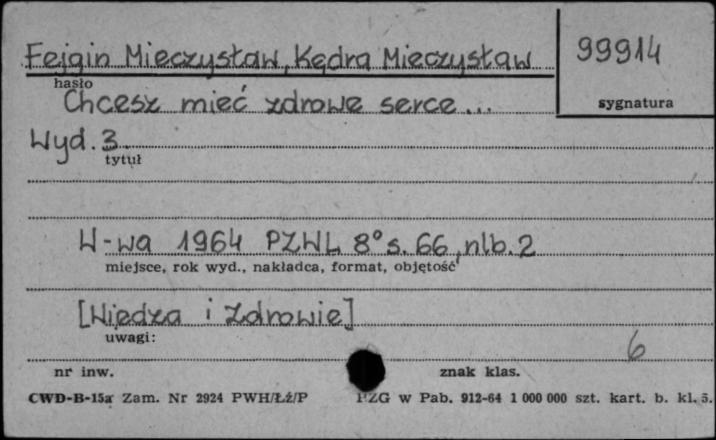 Fejgin Mieczysław, Kędra Mieczysław 99914
hasło
Chcesz mieć zdrowe serce...
sygnatura
Wyd. 3
tytuł
W-wa 1964 PZWL 8° s. 66, nlb. 2
miejsce, rok wyd., nakładca, format, objętość
[Wiedza i Zdrowie]
uwagi:
6
nr inw. znak klas.
CWD-B-15a Zam. Nr 2924 PWH/Łź/P PZG w Pab. 912-64 1 000 000 szt. kart. b. kl. 5.